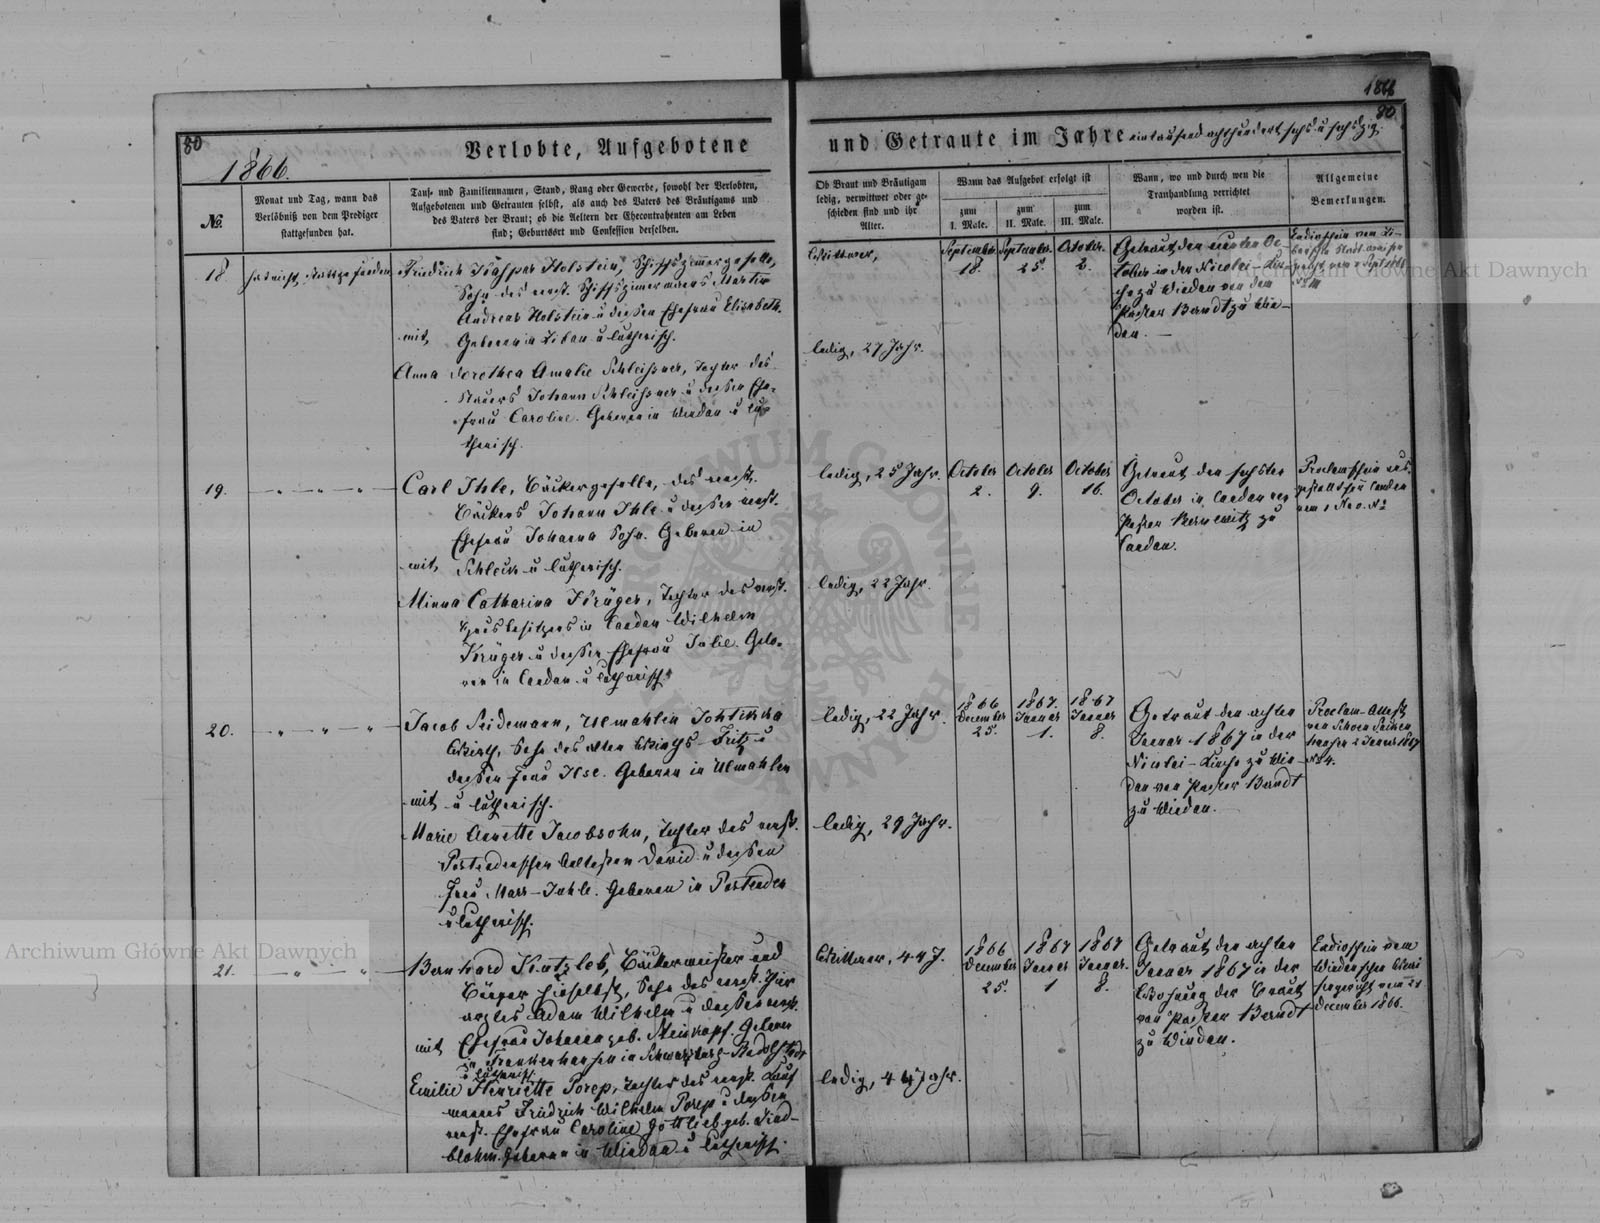 1866
80
80.
1866.
Verlobte, Aufgebotene
und Getraute im Jahre eintausend achthundert sechs u sechszig.
№.
Monat und Tag, wann das
Verlöbniß von dem Prediger
stattgefunden hat.
Tauf- und Familiennamen, Stand, Rang oder Gewerbe, sowohl der Verlobten,
Aufgebotenen und Getrauten selbst, als auch des Vaters des Bräutigams und
des Vaters der Braut; ob die Aeltern der Ehecontrahenten am Leben
sind; Geburtsort und Confession derselben.
Ob Braut und Bräutigam
ledig, verwittwet oder ge-
schieden sind und ihr
Alter.
Wann das Aufgebot erfolgt ist
zum
I. Male.
zum
II. Male.
zum
III. Male.
Wann, wo und durch wen die
Trauhandlung verrichtet
worden ist.
Allgemeine
Bemerkungen.
18.
hat nicht stattgefunden
Friedrich Kaspar Holstein, Schiffszimmergeselle,
Sohn des verst. Schiffszimmermanns Martin
Andreas Holstein u dessen Ehefrau Elisabeth.
mit Geboren in Libau u lutherisch.
Anna Dorothea Amalie Schleissner, Tochter des
Johann Schleissner u dessen Ehe-
frau Caroline. Geboren in Windau u lu-
therisch.
Wittwer,
ledig, 27 Jahr.
September
18.
September
25.
October
2.
Getraut den October in der Nicolai-Kir-
che zu Windau von dem
Pastor Berndt zu Win-
dau.
19.
Carl Ihle, Bäckergeselle, des verst.
Bäckers Johann Ihle u dessen verst.
Ehefrau Johanna Sohn. Geboren in
mit Schleck u lutherisch.
Minna Catharina Krüger, Tochter des verst.
Hausbesitzers in Candau Wilhelm
Krüger u dessen Ehefrau Julie. Gebo-
ren in Candau u lutherisch.
ledig, 25 Jahr.
ledig, 22 Jahr.
October
2.
October
9.
October
16.
Getraut den sechsten
October in Candau von
Pastor Bernewitz zu
Candau.
20.
Jacob Seidemann, Ulmahlen
Wirth, Sohn des alten Wirths Fritz u
dessen Frau Ilse. Geboren in Ulmahlen
mit u lutherisch.
Marie Annette Jacobsohn, Tochter des verst.
David u dessen
Frau Marr-Juhle. Geboren in
u lutherisch.
ledig, 22 Jahr.
ledig, 29 Jahr.
1866
December
25.
1867.
Januar
1.
1867
Januar
8.
Getraut den achten
Januar 1867 in der
Nicolai-Kirche zu Win-
dau von Pastor Berndt
zu Windau.
Proclam-Attest
2 Januar 1867
№ 4.
21.
Bernhard Kintzlob, Bäckermeister und
Bürger hieselbst, Sohn des verst.
Adam Wilhelm u dessen verst.
mit Ehefrau Johanna geb. Steinkopf. Geboren
in Frankenhausen in Schwarzburg-Rudolstadt
u lutherisch.
Emilie Henriette Porep, Tochter des verst. Kauf
manns Friedrich Wilhelm Porep u dessen
verst. Ehefrau Caroline Gottlieb geb. Lind-
blohm. Geboren in Windau u lutherisch.
Wittwer, 44 J.
ledig, 44 Jahr.
1866
December
25.
1867
Januar
1
1867
Januar.
8.
Getraut den achten
Januar 1867 in der
Wohnung der Braut
von Pastor Berndt
zu Windau.
vom
Windauschen Waisen
gericht vom 21
December 1866.
Archiwum Główne Akt Dawnych
Archiwum Główne Akt Dawnych
ARCHIWUM GŁÓWNE